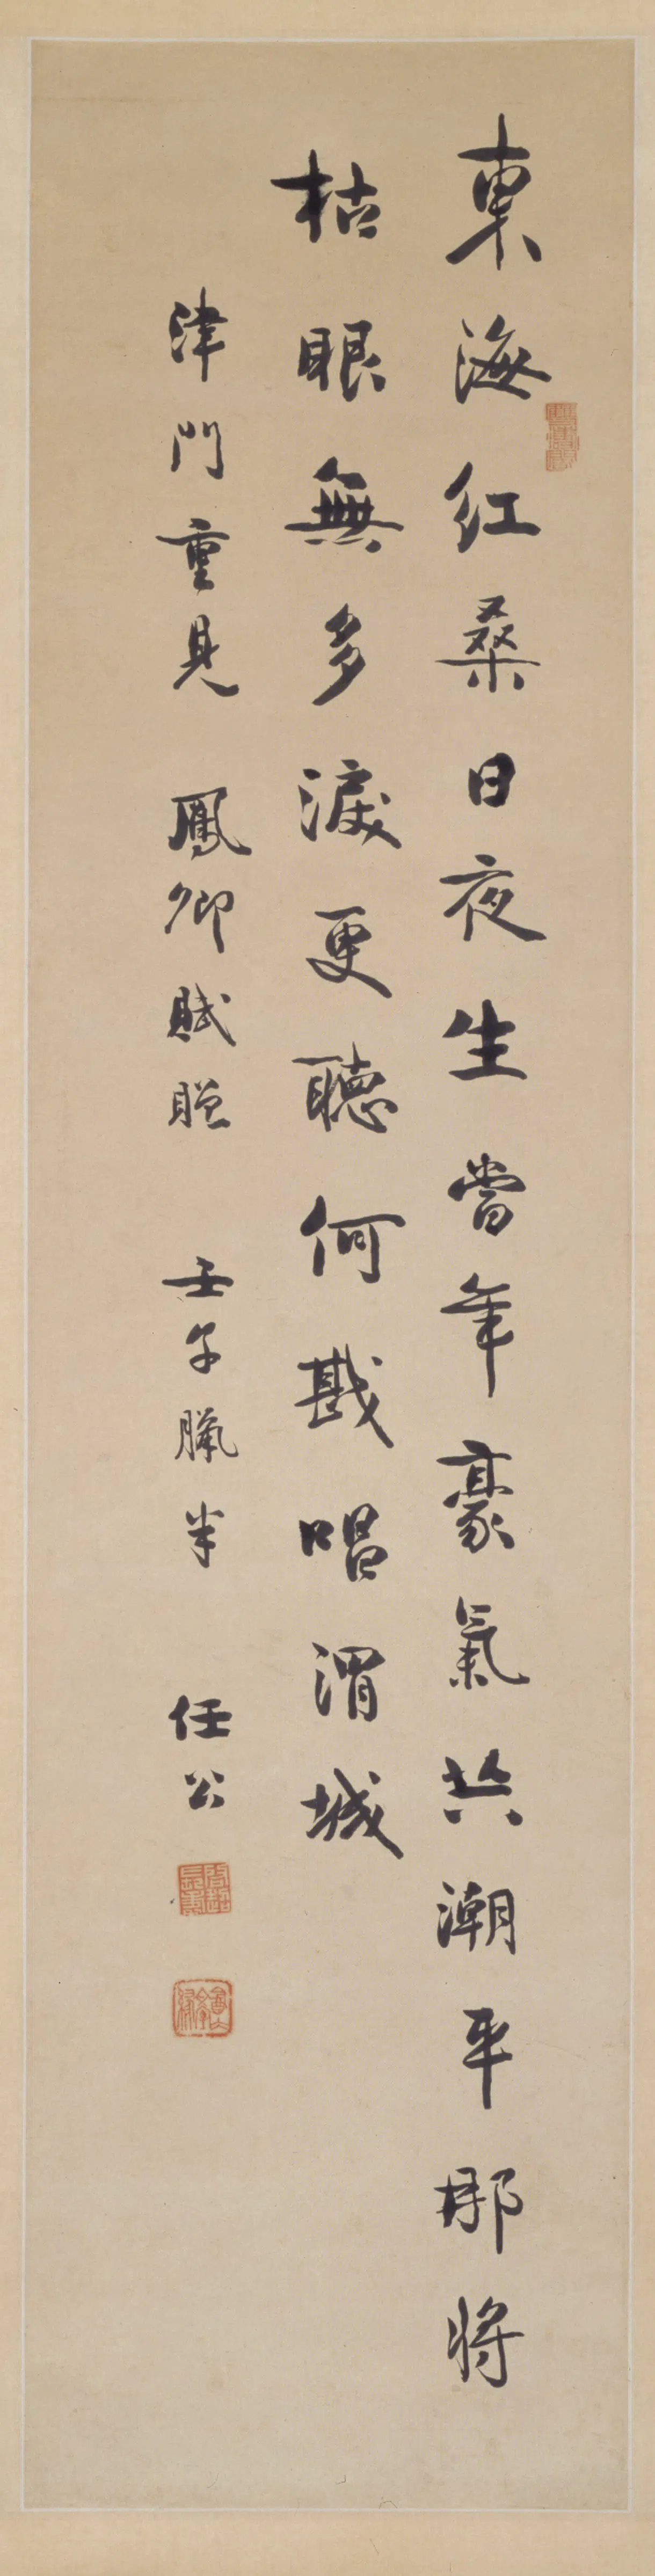 東海紅桑日夜生當年豪氣共潮平那將
枯眼無多淚更聽何戡唱渭城
津門重見 鳳卿賦贈 壬子臘半 任公